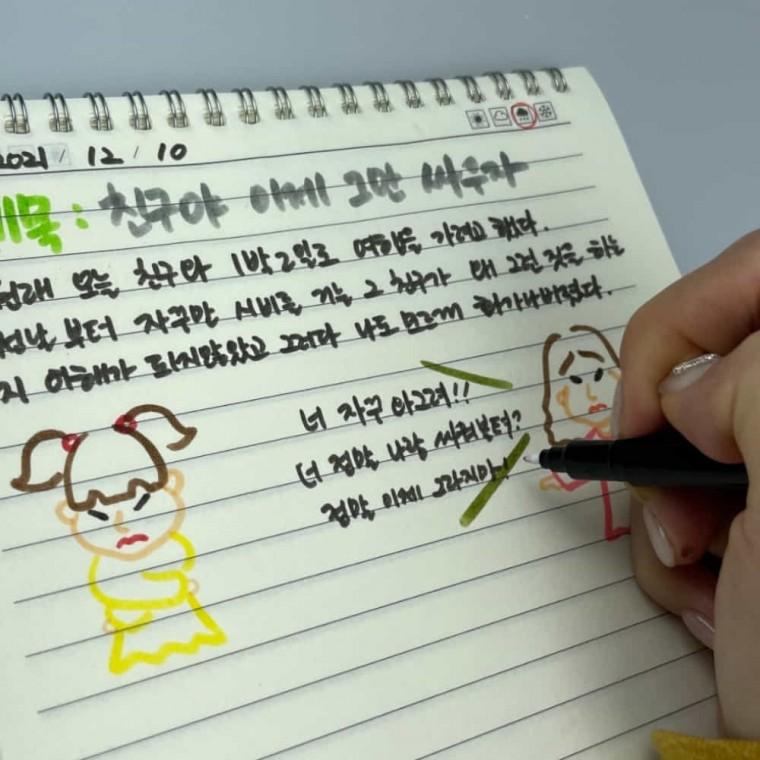 2021 / 12 / 10
제목: 친구야 이제 그만 싸우자
원래 오늘 친구와 1박2일로 여행을 가려고 했다.
부터 자꾸만 시비를 거는 그 친구가 왜 그런 짓을 하는
지 이해가 되지않았고 그러다 나도 모르게 화가나버렸다.
너 자꾸
너 정말 나랑
정말 이제 그러지마!